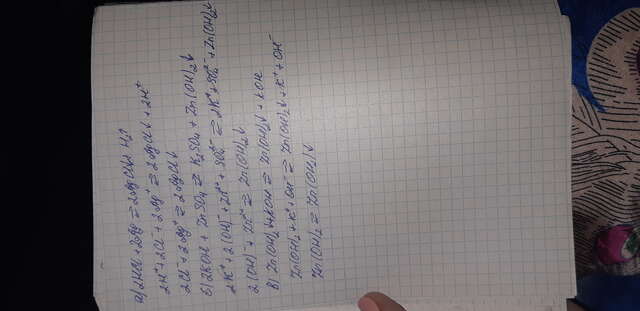 а) 2HCl + 2Ag ⇌ 2AgCl↓ + H₂↑
2H⁺ + 2Cl⁻ + 2Ag⁺ ⇌ 2AgCl↓ + 2H⁺
2Cl⁻ + 2Ag⁺ ⇌ 2AgCl↓
б) 2KOH + ZnSO₄ ⇌ K₂SO₄ + Zn(OH)₂↓
2K⁺ + 2(OH)⁻ + Zn²⁺ + SO₄²⁻ ⇌ 2K⁺ + SO₄²⁻ + Zn(OH)₂↓
2(OH)⁻ + Zn²⁺ ⇌ Zn(OH)₂↓
в) Zn(OH)₂ + KOH ⇌ Zn(OH)₂↓ + KOH
Zn(OH)₂ + K⁺ + OH⁻ ⇌ Zn(OH)₂↓ + K⁺ + OH⁻
Zn(OH)₂ ⇌ Zn(OH)₂↓